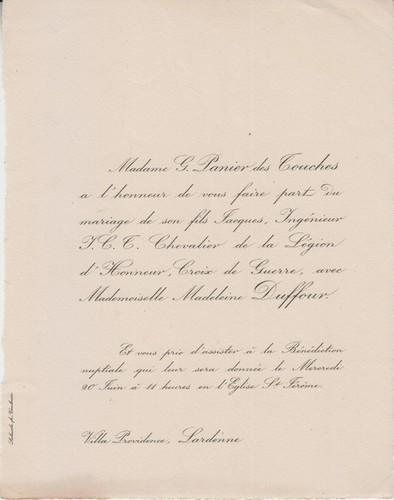 Madame G. Panier des Touches
a l'honneur de vous faire part du
mariage de son fils Jacques, Ingénieur
I.C.T. Chevalier de la Légion
d'Honneur, Croix de Guerre, avec
Mademoiselle Madeleine Duffour.
Et vous prie d'assister à la Bénédiction
nuptiale qui leur sera donnée le Mercredi
20 Juin à 11 heures en l'Eglise St Jérôme.
Villa Providence, Lardenne